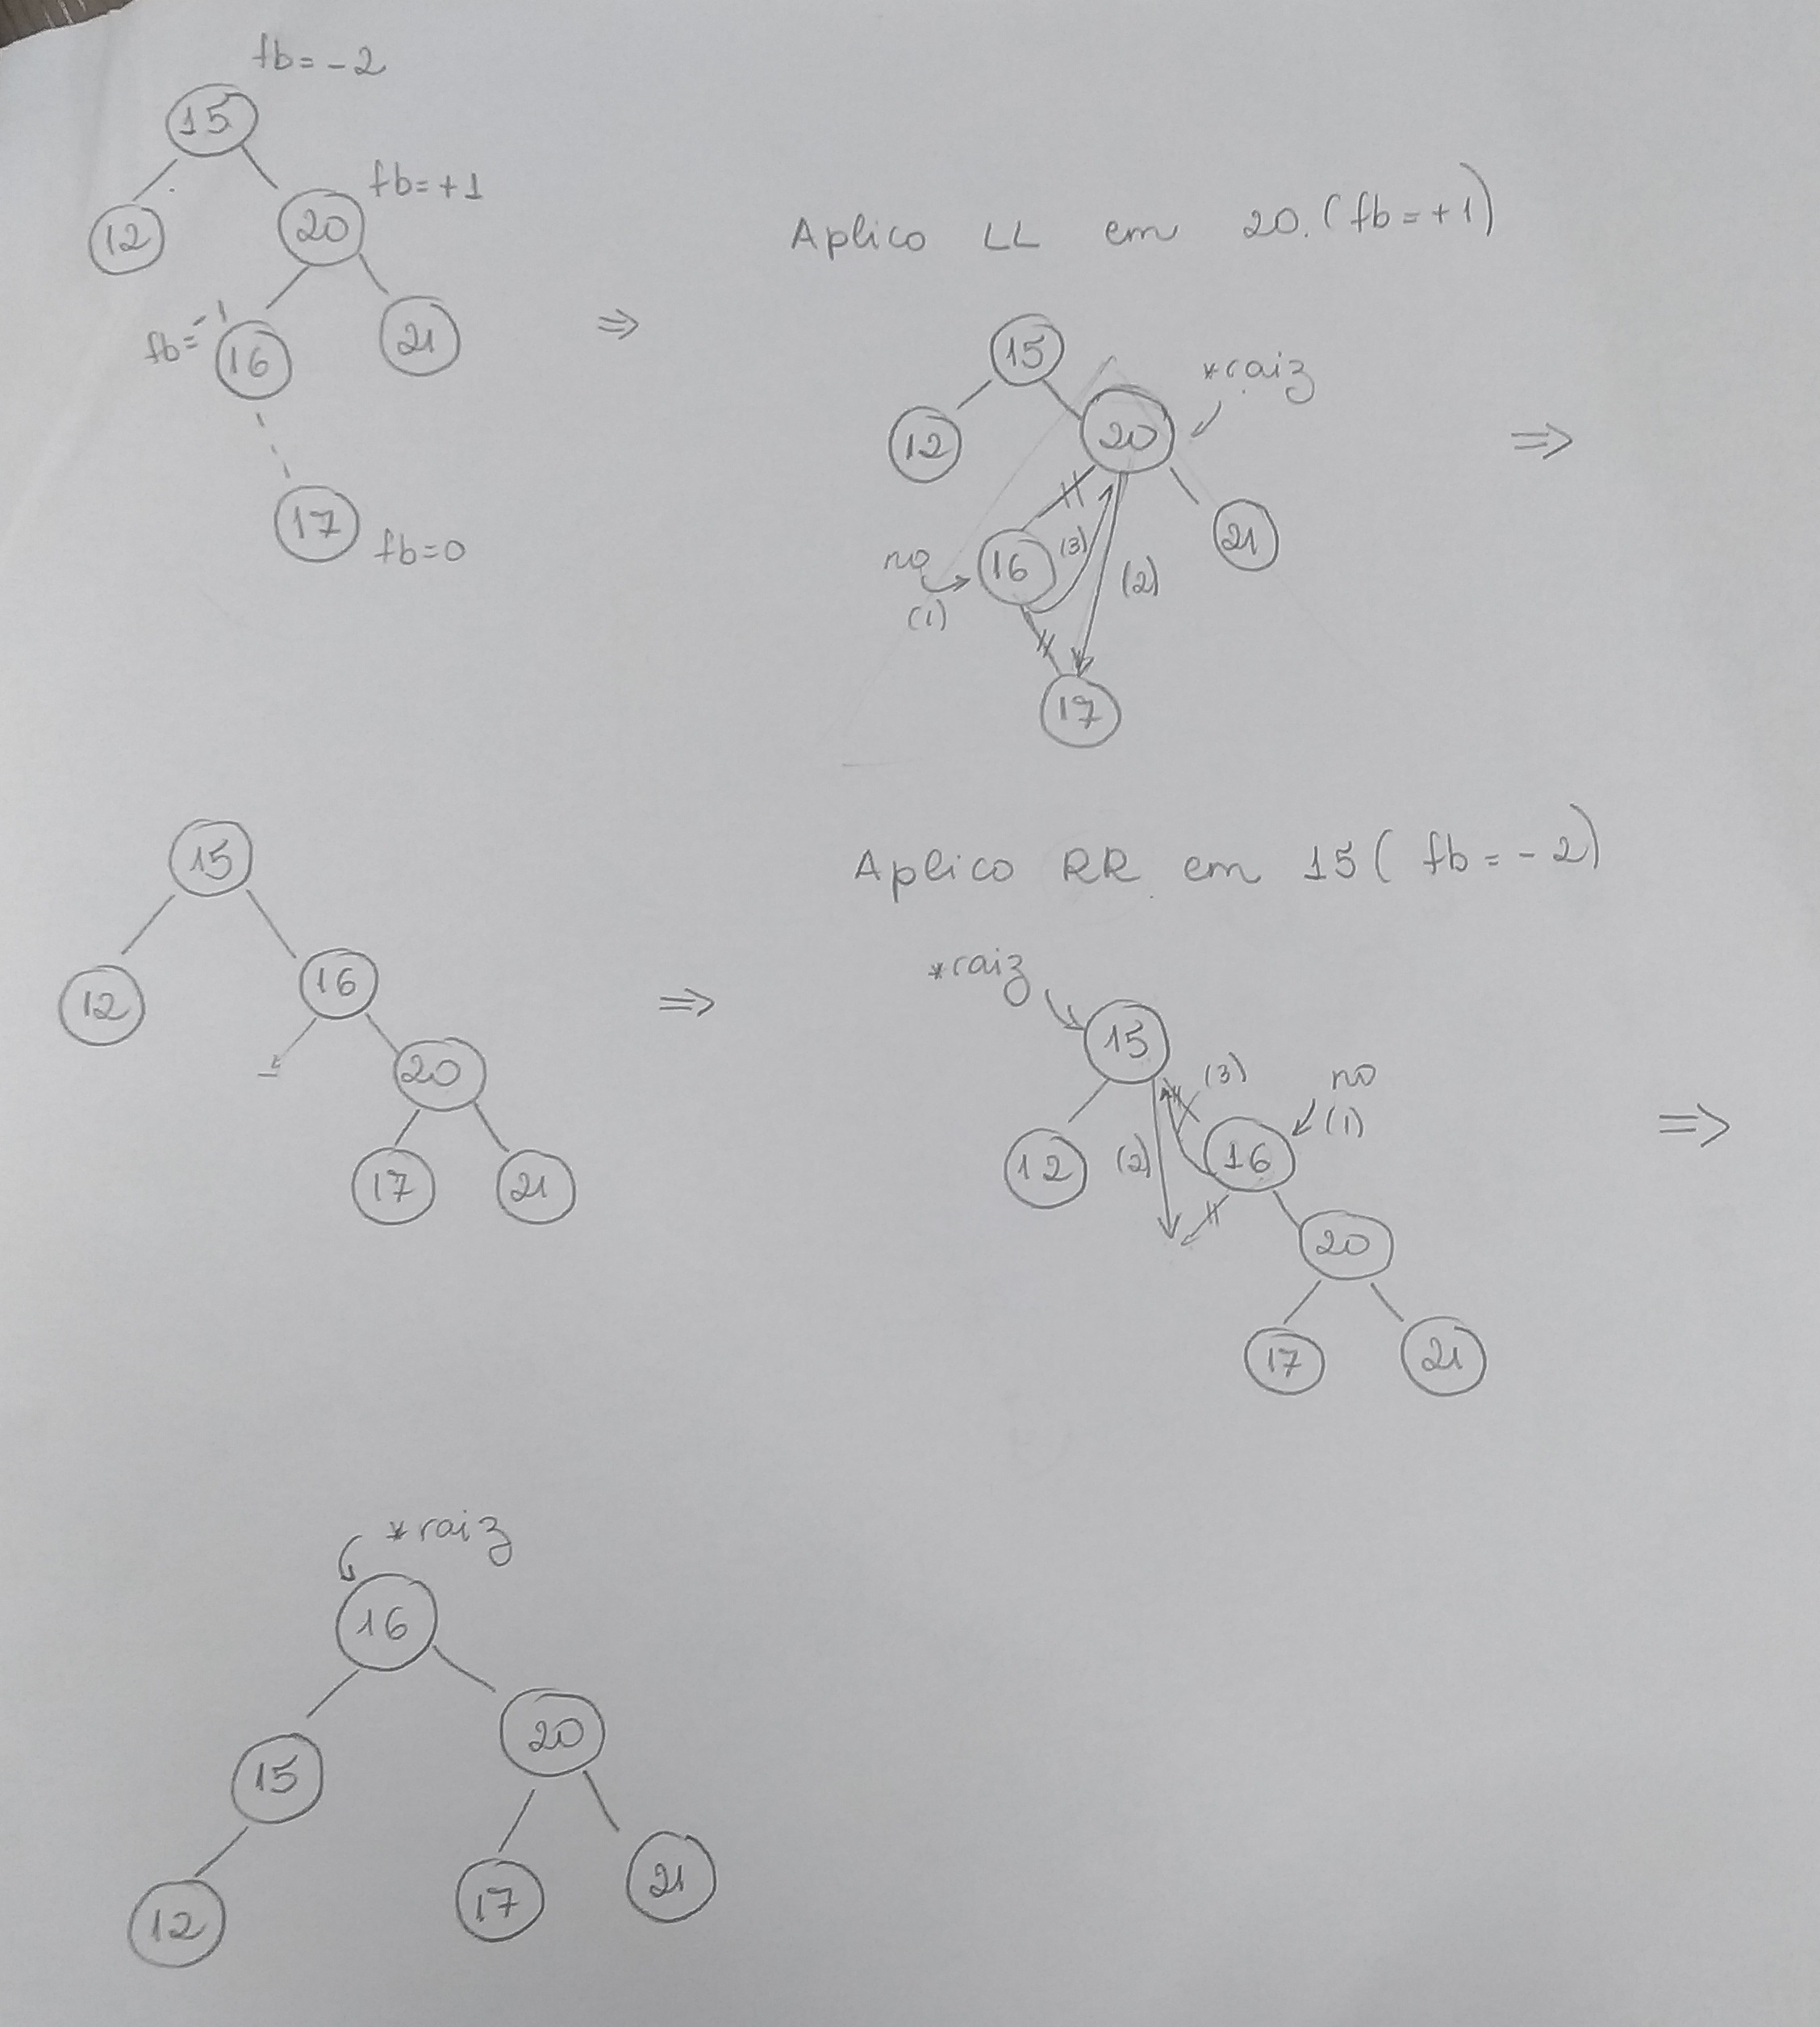 fb=-2
15
fb=+1
12
20
fb=-1
16
21
17
fb=0
⇒
Aplico LL em 20. (fb=+1)
15
*raiz
12
20
⇒
no
(1)
16
(3)
(2)
21
17
15
12
16
20
17
21
⇒
Aplico RR em 15 (fb=-2)
*raiz
15
(3)
no
(1)
12
(2)
16
⇒
20
17
21
*raiz
16
15
20
12
17
21